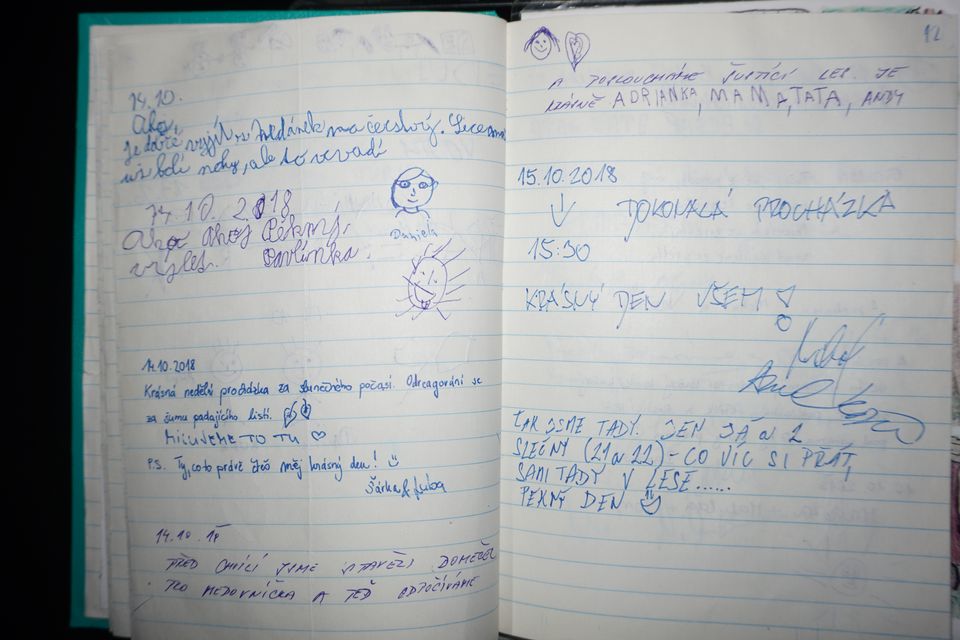 14.10.
Ahoj,
je dobře vyjít si
už bolí nohy, ale to nevadí
14.10.2018
Ahoj Ahoj Pěkný,
výlet. Pavlínka.
Daniela
14.10.2018
Krásná nedělní procházka za slunečného počasí. Odreagování se
za šumu padajícího listí.
MILUJEME TO TU ♡
P.S. Ty, co to právě čteš měj krásný den! ☺
Šárka & Luba
14.10.18
PŘED CHVÍLÍ JSME STAVĚLI DOMEČEK
PRO MEDOVNÍČKA A TEĎ ODPOČÍVÁME
12
A POSLOUCHÁME ŠUSTÍCÍ LES. JE
NÁDHERNĚ ADRIANKA, MAMA, TATA, ANDY
15.10.2018
↓ DOKONALÁ PROCHÁZKA
15:30
KRÁSNÝ DEN VŠEM!
TAK JSME TADY. JEN JÁ a 2
SLEČNY (21 a 22) - CO VÍC SI PŘÁT,
SAMI TADY V LESE......
PĚKNÝ DEN ☺